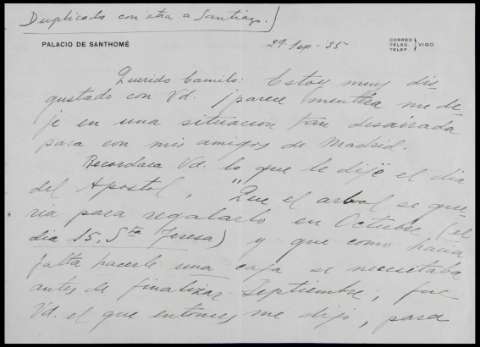 Duplicada con otra a Santiago.)
PALACIO DE SANTHOMÉ
29-Sep.-35
CORREO
TELEG.
TELEF.
VIGO
Querido Camilo: Estoy muy dis
gustado con Vd. ¡parece mentira me de-
je en una situacion tan desairada
para con mis amigos de Madrid.
Recordara Vd. lo que le dije el dia
del Apostol, "Que el arbol se que-
ria para regalarlo en Octubre (el
dia 15, Sta Teresa) y que como hacia
falta hacerle una caja se necesitaba
antes de finalizar Septiembre, fue
Vd. el que entonces me dijo, para